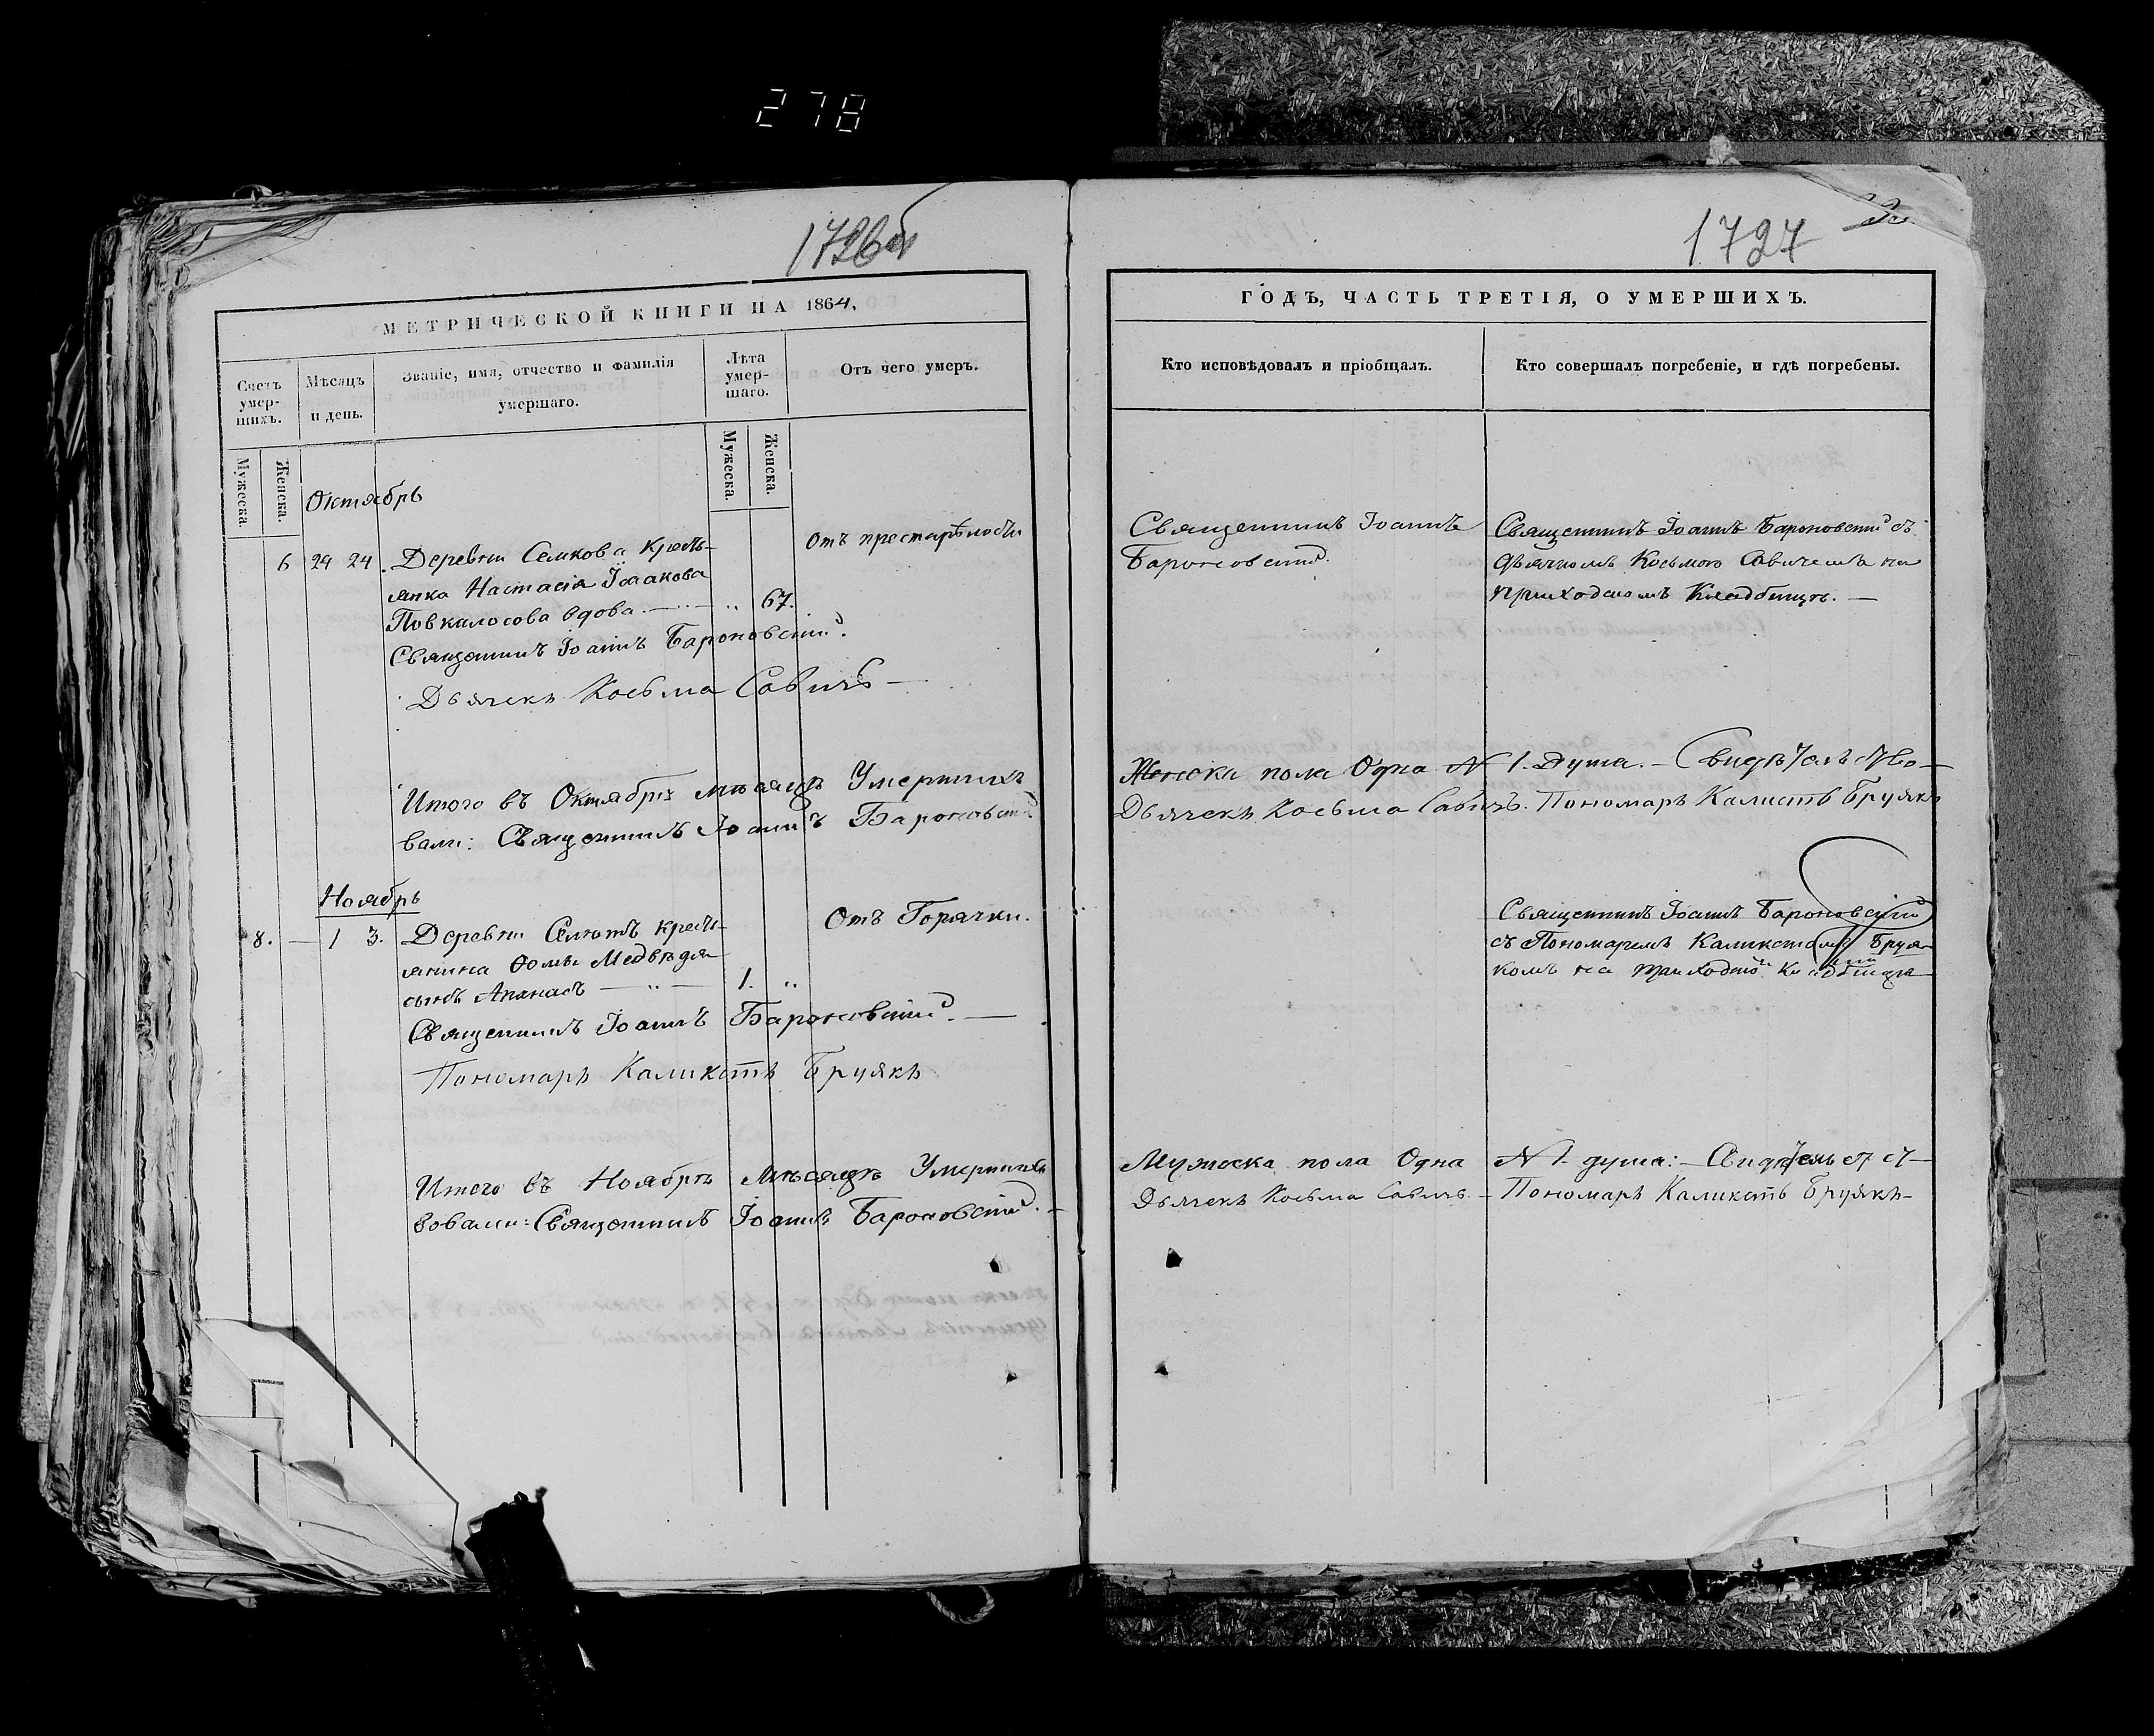 278
1726об
МЕТРИЧЕСКОЙ КНИГИ НА 1864,
Счетъ умер-шихъ.
Мѣсяцъ и день.
Званіе, имя, отчество и фамилія умершаго.
Лѣта умер-шаго.
Отъ чего умеръ.
Мужеска.
Женска.
Мужеска.
Женска.
Октябрь
6 24 24. Деревни Семкова Кресть-
янка Настасія Исакова
вдова — 67.
Отъ престарѣлости
Священникъ Іоаннъ Бароновскій.
Дьячекъ Косьма Савичъ —
Итого въ Октябрѣ мѣсяцѣ Умершихъ
вали: Священникъ Іоаннъ Бароновскій
Ноябрь
8. — 1 3. Деревни кресть-
янина Ѳомы Медвѣдя
сынъ Апанасъ — 1.
Отъ Горячки.
Священникъ Іоаннъ Бароновскій. —
Пономарь Каликстъ Бруякъ
Итого въ Ноябрѣ Мѣсяцѣ Умершихъ
вовали: Священникъ Іоаннъ Бароновскій. —
1727
ГОДЪ, ЧАСТЬ ТРЕТІЯ, О УМЕРШИХЪ.
Кто исповѣдовалъ и пріобщалъ.
Кто совершалъ погребеніе, и гдѣ погребены.
Священникъ Іоаннъ
Бароновскій.
Священникъ Іоаннъ Бароновскій съ
Дьячкомъ Косьмою Савичемъ на
приходскомъ Кладбищѣ. —
Женска пола Одна N 1. Душа. — Свидѣтельство-
Дьячекъ Косьма Савичъ. Пономарь Калистъ Бруякъ
Священникъ Іоаннъ Бароновскій
съ Пономаремъ Каликстомъ Бруя-
комъ на приходскомъ Кладбищѣ
Мужеска пола Одна N 1. душа: — Свидѣтельст-
Дьячекъ Косьма Савичъ. — Пономарь Каликстъ Бруякъ —